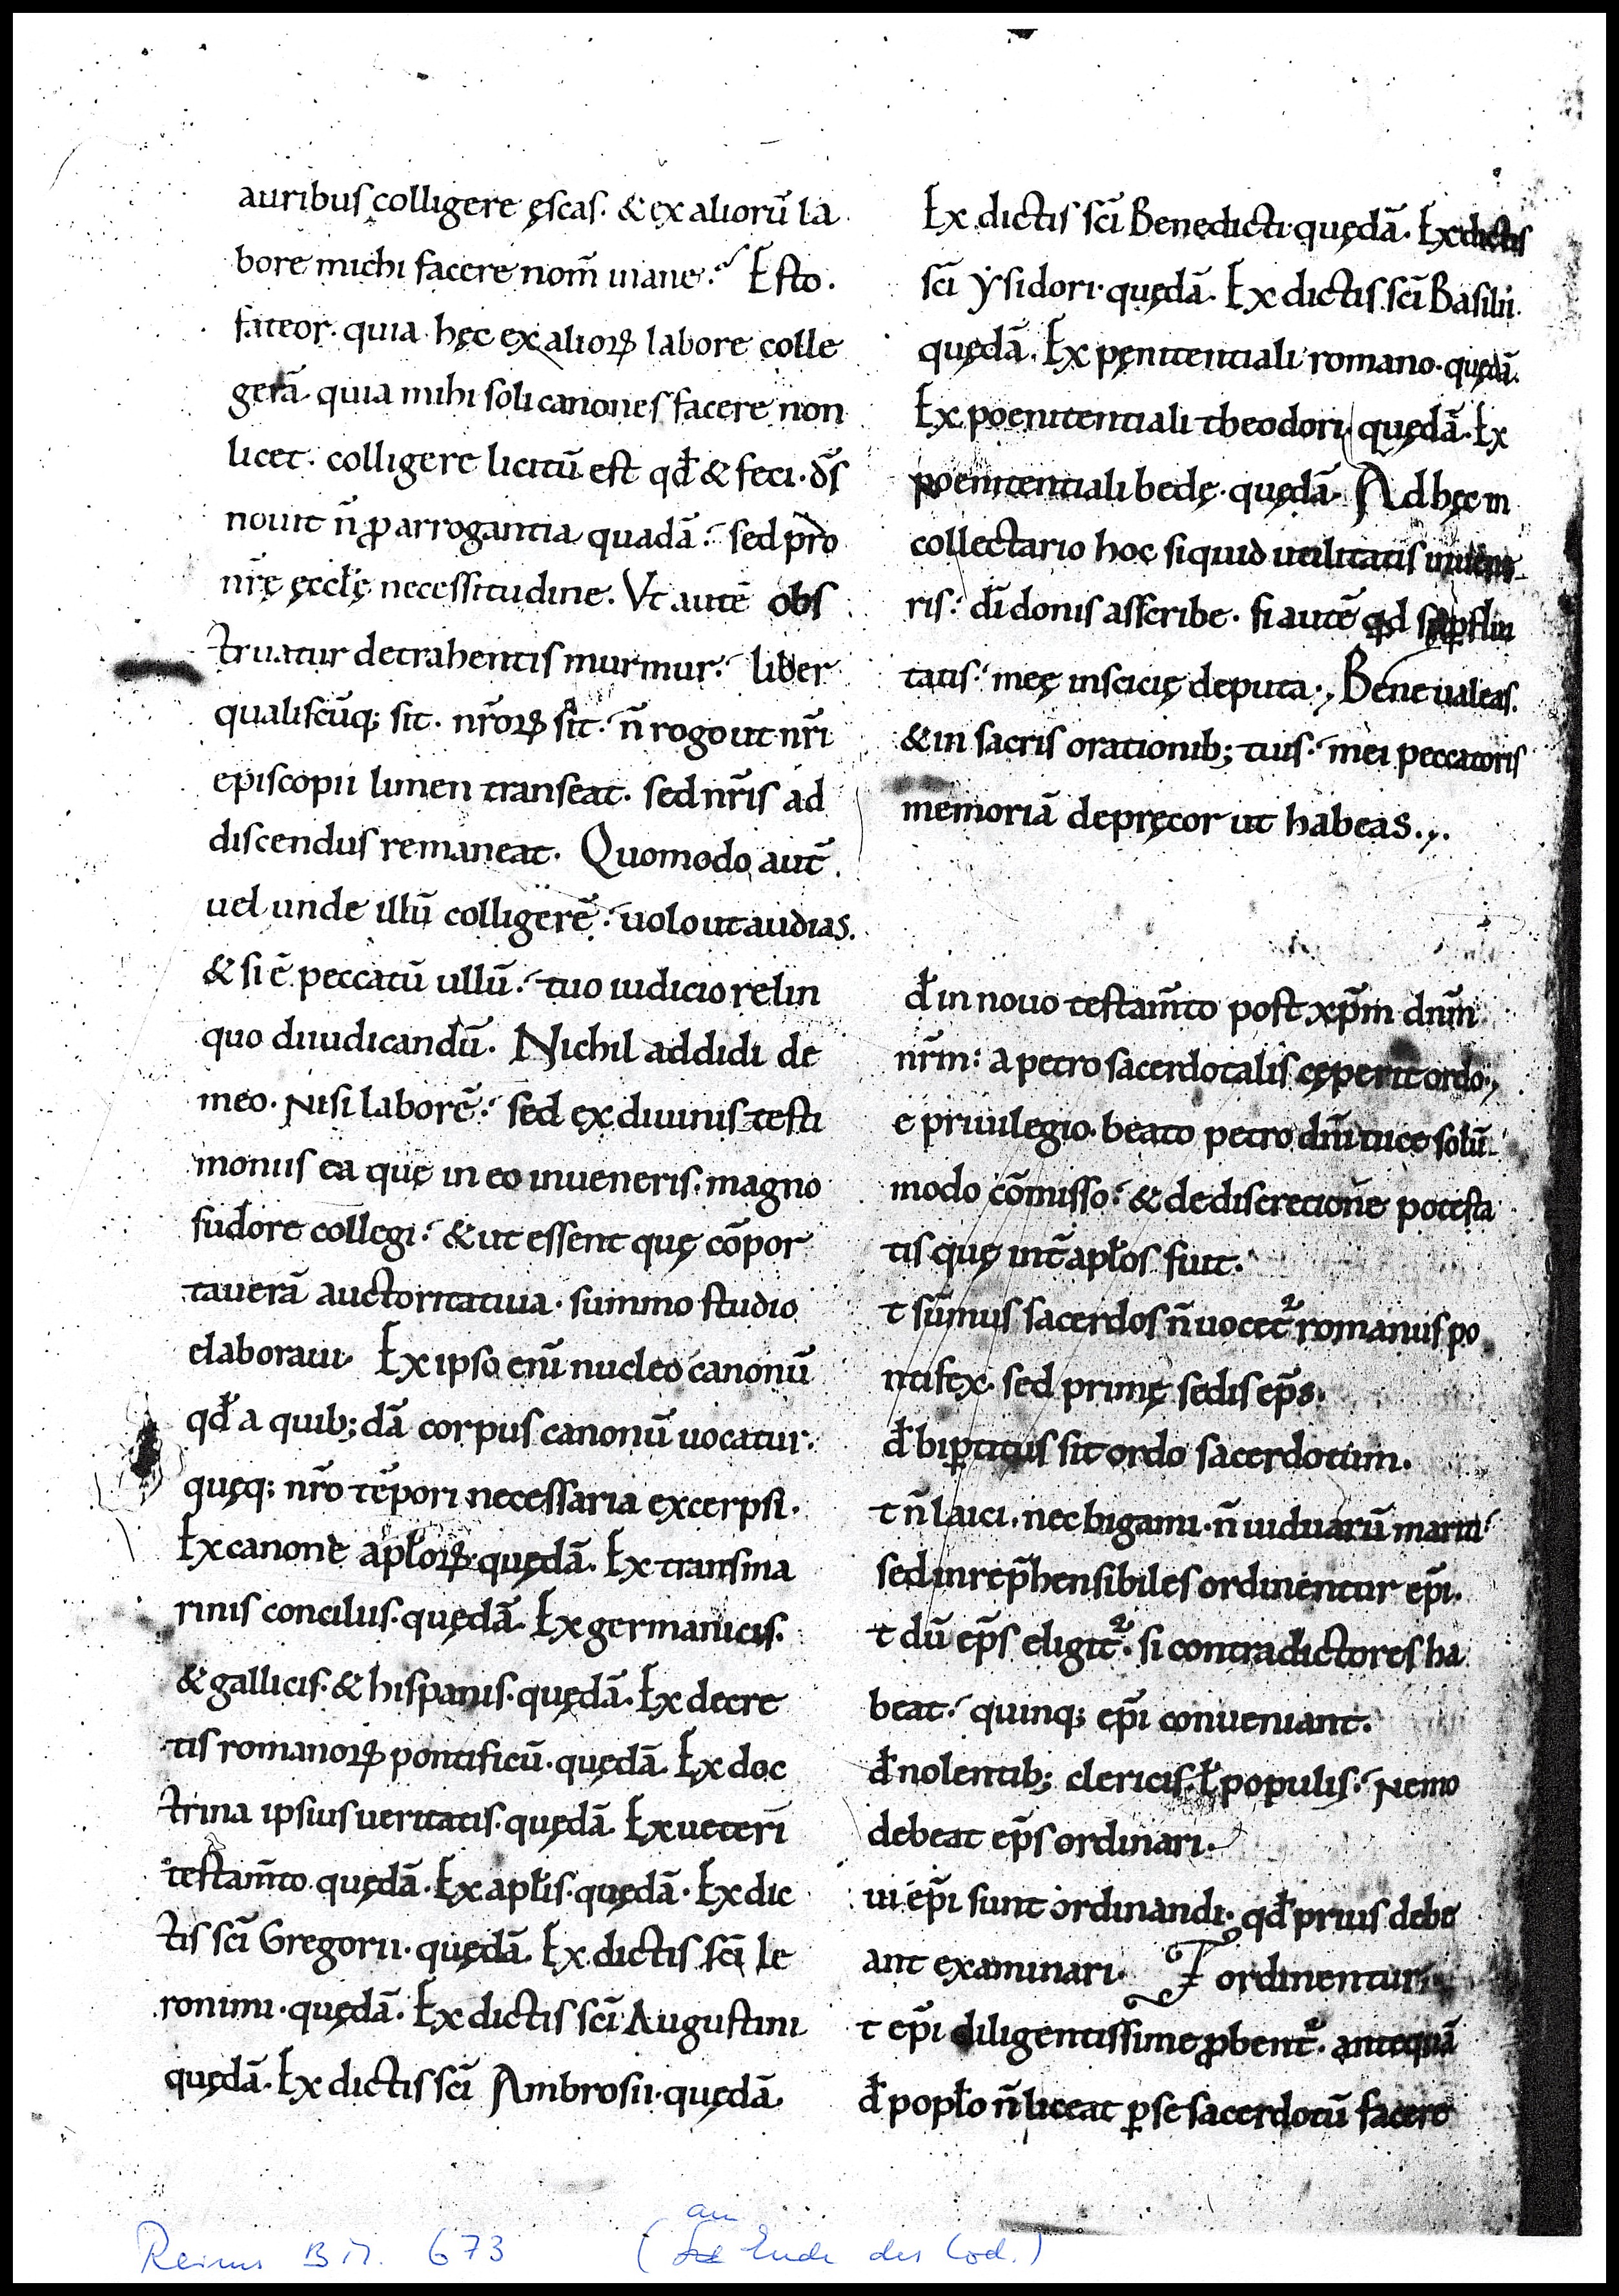 auribus colligere ęscas. & ex aliorū la
bore michi facere nom̄ inane? Esto.
fateor. quia hęc ex alioꝝ labore colle
gerā. quia mihi soli canones facere non
licet. colligere licitū est qđ & feci. d̄s
nouit n̄ ꝓ arrogantia quadā. sed pro
nr̄ę ęccłę necessitudine. Vt autē obs
truatur detrahentis murmur. liber
qualiscūq; sit. nr̄oꝝ sit. n̄ rogo ut nr̄i
episcopii limen transeat. sed nr̄is ad
discendus remaneat. Quomodo aut̄
uel unde illū colligerē. uolo ut audias.
& si ē peccatū ullū. tuo iudicio relin
quo diiudicandū. Nichil addidi de
meo. Nisi laborē. sed ex diuinis testi
moniis ea quę in eo inueneris. magno
sudore collegi. & ut essent quę cōpor
tauerā auctoritatiua. summo studio
elaboraui. Ex ipso enī nucleo canonū
qđ a quib;dā corpus canonū uocatur.
quęq; nr̄o tēpori necessaria excerpsi.
Ex canone apłoꝝ. quędā. Ex transma
rinis conciliis. quędā. Ex germanicis.
& gallicis. & hispanis. quędā. Ex decre
tis romanoꝝ pontificū. quędā. Ex doc
trina ipsius ueritatis. quędā. Ex ueteri
testam̄to quędā. Ex apłis. quędā. Ex dic
tis sc̄i Gregorii. quędā. Ex dictis sc̄i Ie
ronimi. quędā. Ex dictis sc̄i Augustini
quędā. Ex dictis sc̄i Ambrosii. quędā.
Ex dictis sc̄i Benedicti. quędā. Ex dictis
sc̄i ẏsidori. quędā. Ex dictis sc̄i Basilii.
quędā. Ex pęnitentiali romano. quędā.
Ex poenitentiali theodori. quędā. Ex
poenitentiali bedę. quędā. Ad hęc in
collectario hoc siquid utilitatis inuene
ris. dī donis asscribe. si autē qd
tatis. meę insicię deputa., Bene ualeas.
& in sacris orationib; tuis. mei peccatoris
memoriā depręcor ut habeas.,.
đ in nouo testam̄to post xp̄m dn̄m
nr̄m: a petro sacerdotalis cęperit ordo.,
e priuilegio. beato petro dn̄i uice solū
modo cōmisso. & de discretione potesta
tis quę int̄ apłos fuit.
t sūmus sacerdos n̄ uocet̄ romanus po
ntifex. sed primę sedis ep̄s.
đ biꝑtitus sit ordo sacerdotum.
t n̄ laici. nec bigami. n̄ uiduarū mariti
sed inrep̄hensibiles ordinentur ep̄i.
t dū ep̄s eligit̄. si contradictores ha
beat. quinq; ep̄i conueniant.
đ nolentib; clericis. ł populis. Nemo
debeat ep̄s ordinari.
ui ep̄i sunt ordinandi. qđ prius debe
ant examinari. ordinentur.
t ep̄i diligentissime ꝓbent̄. antequā
đ popło n̄ liceat ꝑ se sacerdotū facere
Reims B.M. 673 (am Ende des Cod.)